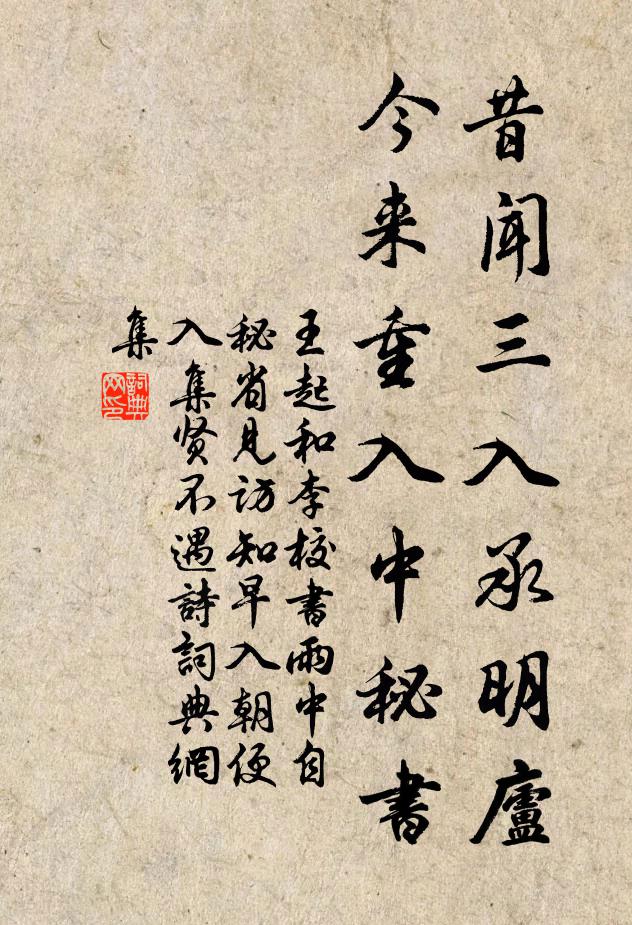 昔聞三入承明廬
今来重入中秘書
王起和李校書雨中自
秘省見訪知早入朝便
入集贤不遇詩詞典網
集
詞典網印